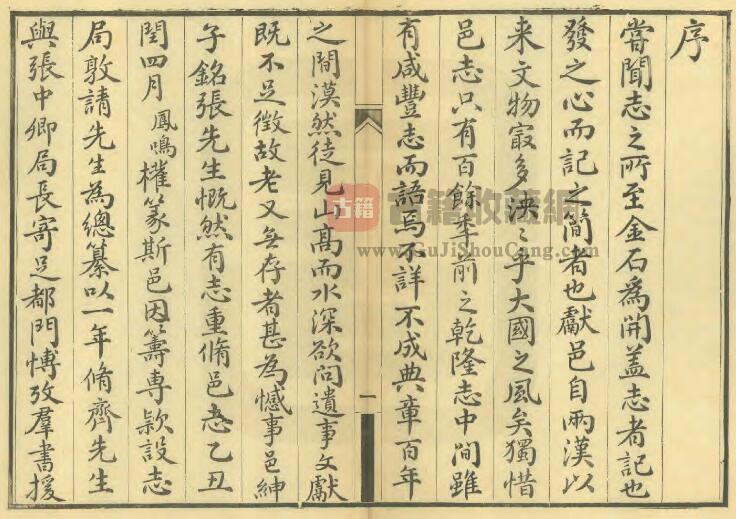 序
嘗聞志之所至金石為開蓋志者記也
發之心而記之簡者也獻邑自兩漢以
来文物㝡多泱〻乎大國之風矣獨惜
邑志只有百餘年前之乾隆志中間雖
有咸豐志而語焉不詳不成典章百年
之間漠然徒見山高而水深欲问遺事文獻
既不足徴故老又無存者甚為憾事邑紳
子銘張先生慨然有志重脩邑志乙丑
閏四月鳳鳴權篆斯邑因籌專款設志
局敦請先生為總纂以一年脩齊先生
與張中卿局長寄足都門博攷羣書援
一
古籍
古籍收藏網
www.GuJiShouCang.com